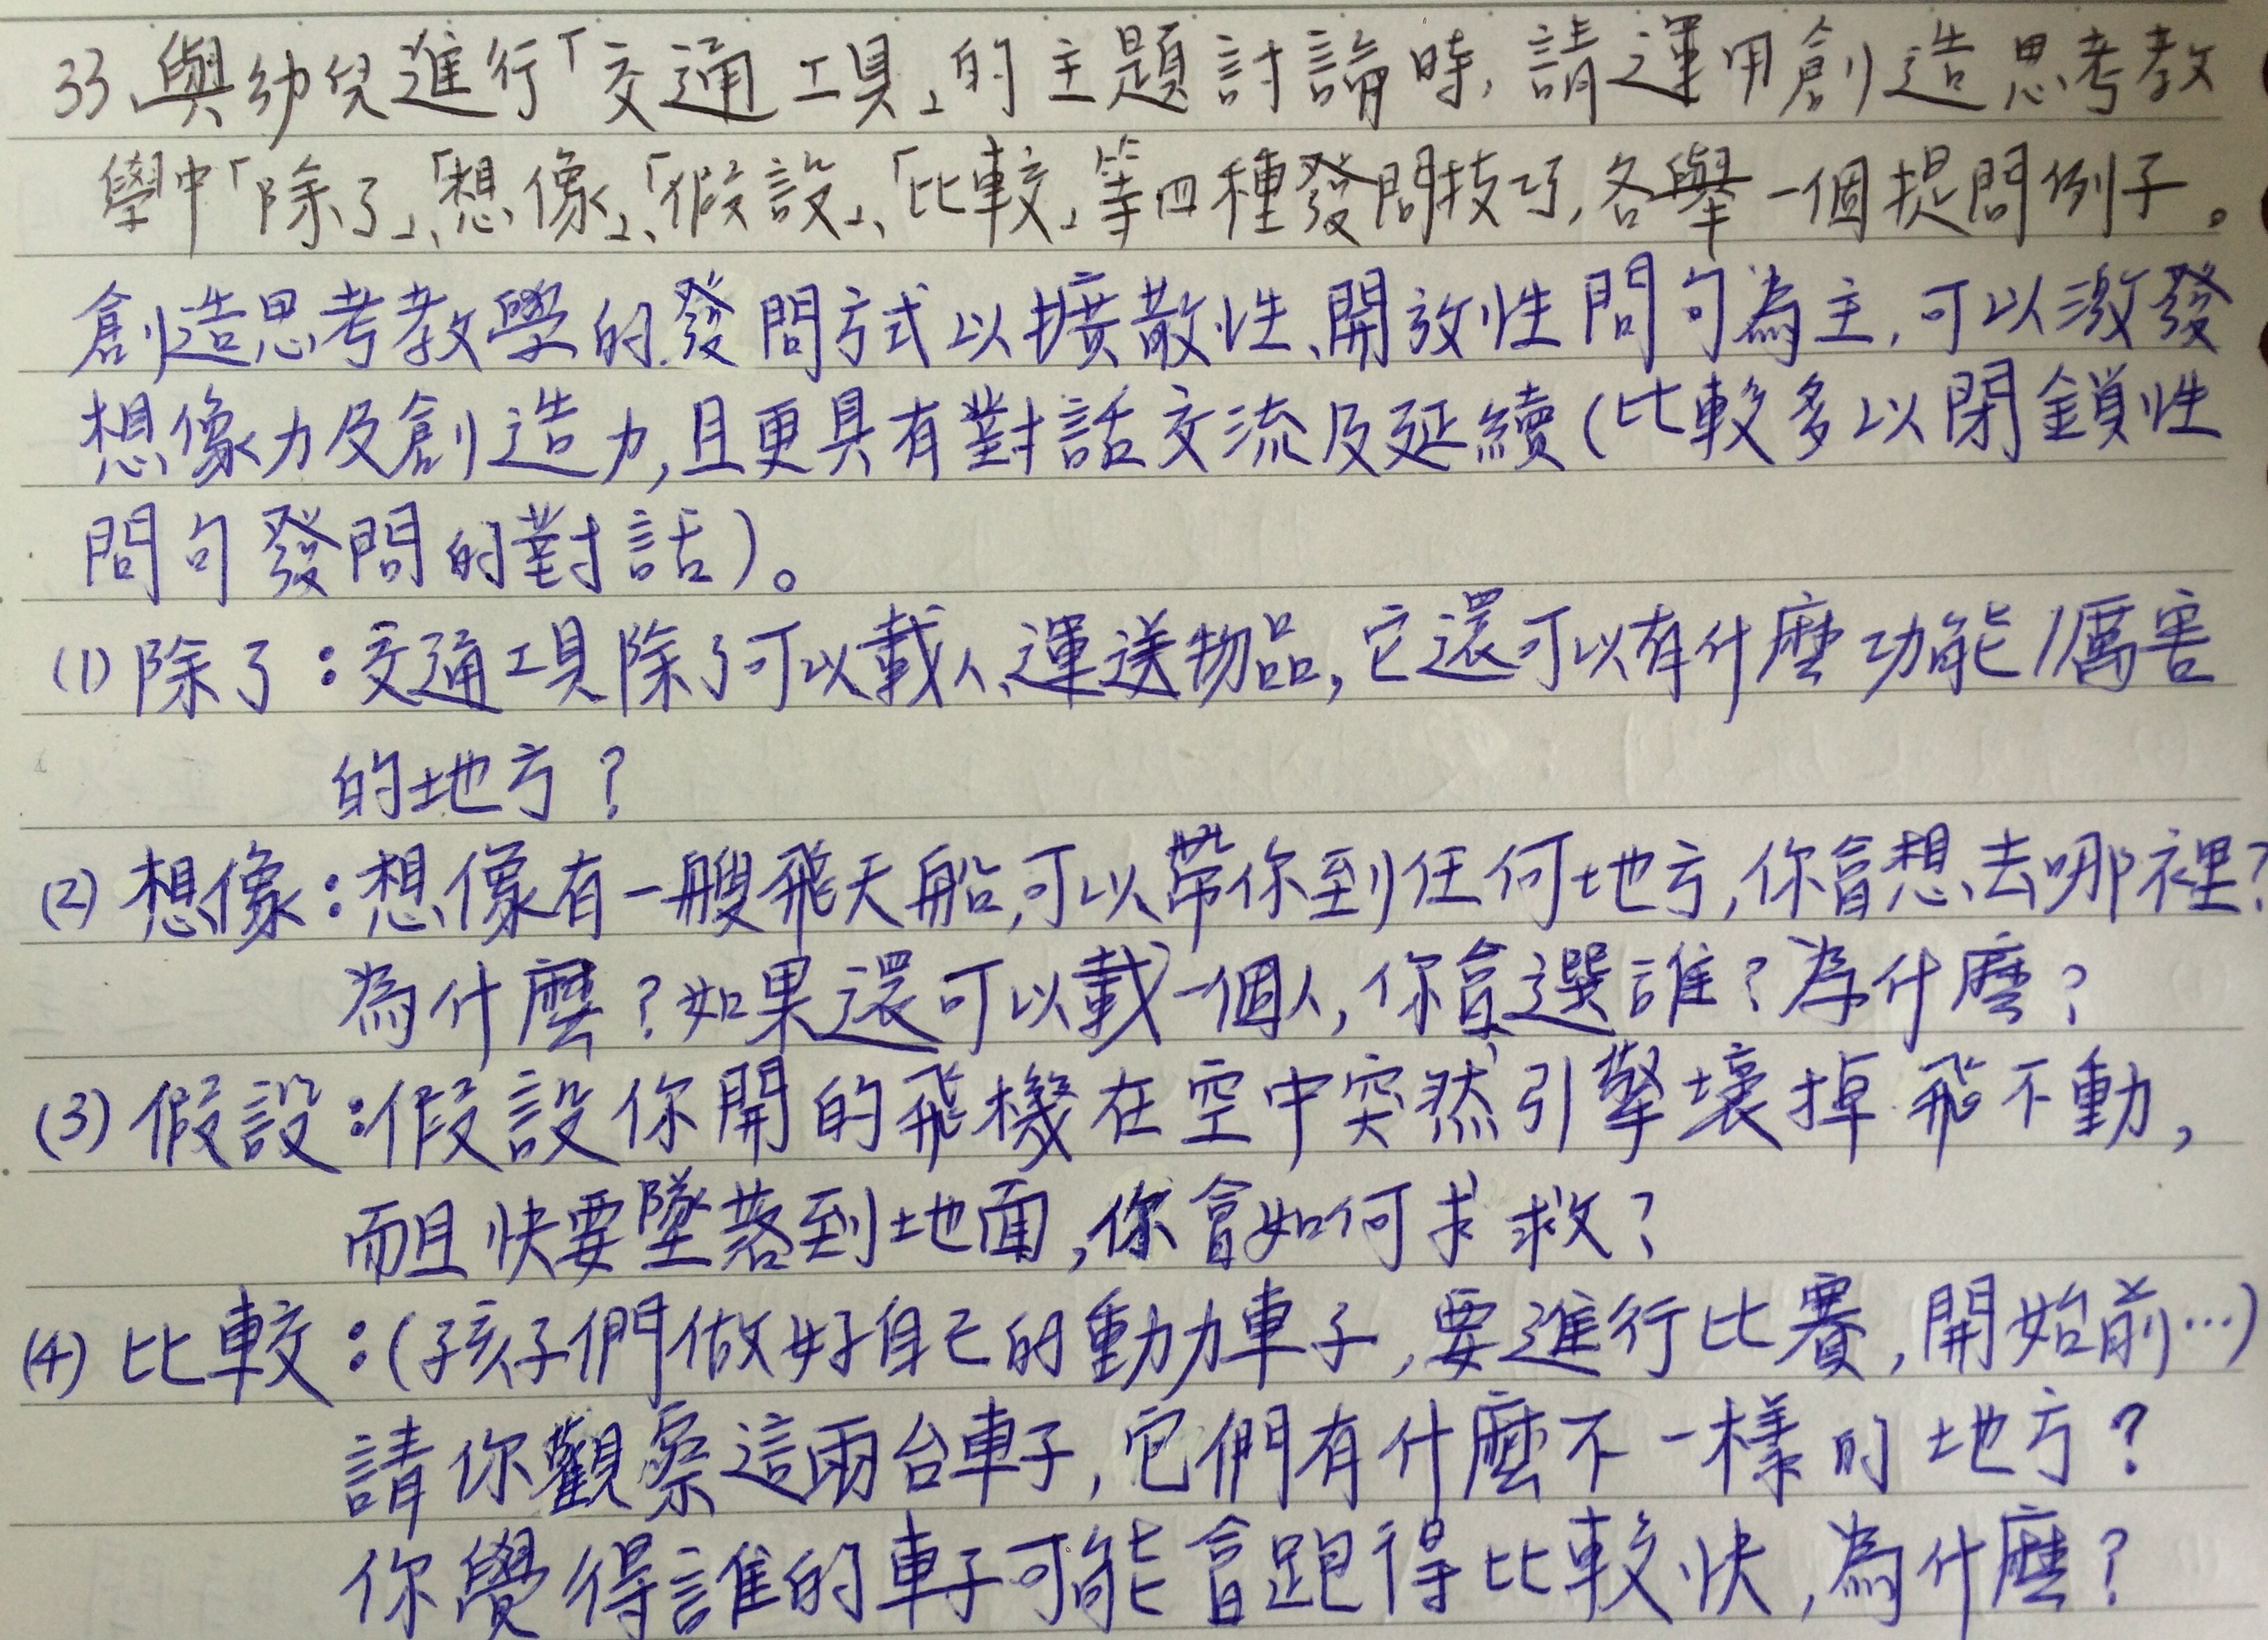 33、與幼兒進行「交通工具」的主題討論時,請運用創造思考教
學中「除了」、「想像」、「假設」、「比較」等四種發問技巧,各舉一個提問例子。
創造思考教學的發問方式以擴散性、開放性問句為主,可以激發
想像力及創造力,且更具有對話交流及延續(比較多以閉鎖性
問句發問的對話)。
(1)除了:交通工具除了可以載人、運送物品,它還可以有什麼功能/厲害
的地方?
(2)想像:想像有一艘飛天船,可以帶你到任何地方,你會想去哪裡?
為什麼?如果還可以載一個人,你會選誰?為什麼?
(3)假設:假設你開的飛機在空中突然引擎壞掉飛不動,
而且快要墜落到地面,你會如何求救?
(4)比較:(孩子們做好自己的動力車子,要進行比賽,開始前…)
請你觀察這兩台車子,它們有什麼不一樣的地方?
你覺得誰的車子可能會跑得比較快,為什麼?